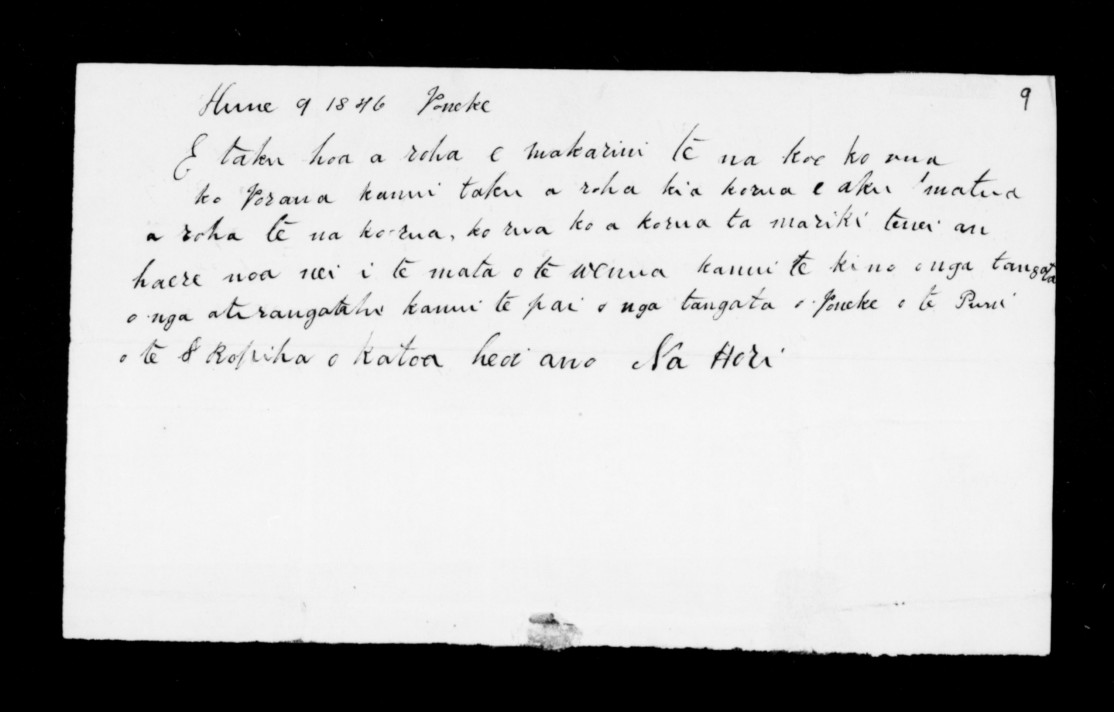 Hune 9 1846 Poneke
9
E taku hoa a roha e makarini te na koe ko rua
ko Porana kanui taku a roha kia korua e aku matua
a roha te na ko rua, ko rua ko a korua ta mariki tenei au
haere noa nei i te mata o te wenua kanui te ki no o nga tangata
o nga ati rangatahi kanui te pai o nga tangata o Poneke o te
o te Kopiha o katoa heoi ano Na Hori